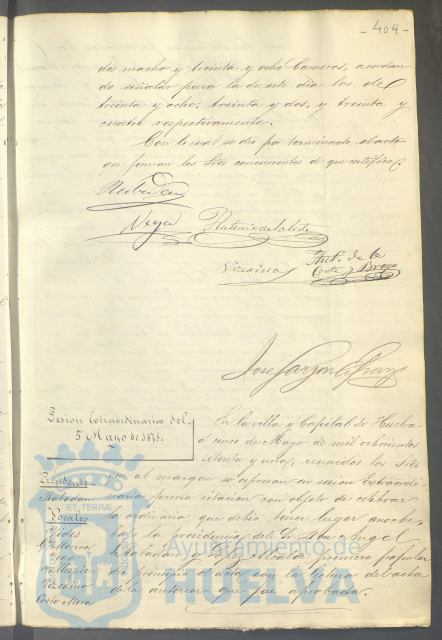 - 404 -
dos machos y treinta y ocho Carneros, acordan
do señalar para la de este dia los de
treinta y ocho, treinta y dos, y treinta y
cuatro respectivamente.
Con lo cual se dio por terminado el acto
que firman los Sres concurrentes de que certifico,
Vega
Antonio de la Corte
Vizcaino
Ant.º de la
Corte y Bravo
Jose Garzon
Sesion Extraordinaria del
5 Mayo de 1871.
Presidente
Vocales
Vizcaino
En la villa y Capital de Huelva
a cinco de Mayo de mil ochocientos
setenta y uno, reunidos los Sres
que al margen se espresan en sesion extraordi
naria previa citacion con objeto de celebrar
la ordinaria que debio tener lugar anoche,
bajo la presidencia del Sr. Don Angel
Alcalde primero popular
dio principio el acto con la lectura del acta
de la anterior que fue aprobada.
ET TERRÆ
Ayuntamiento de
HUELVA